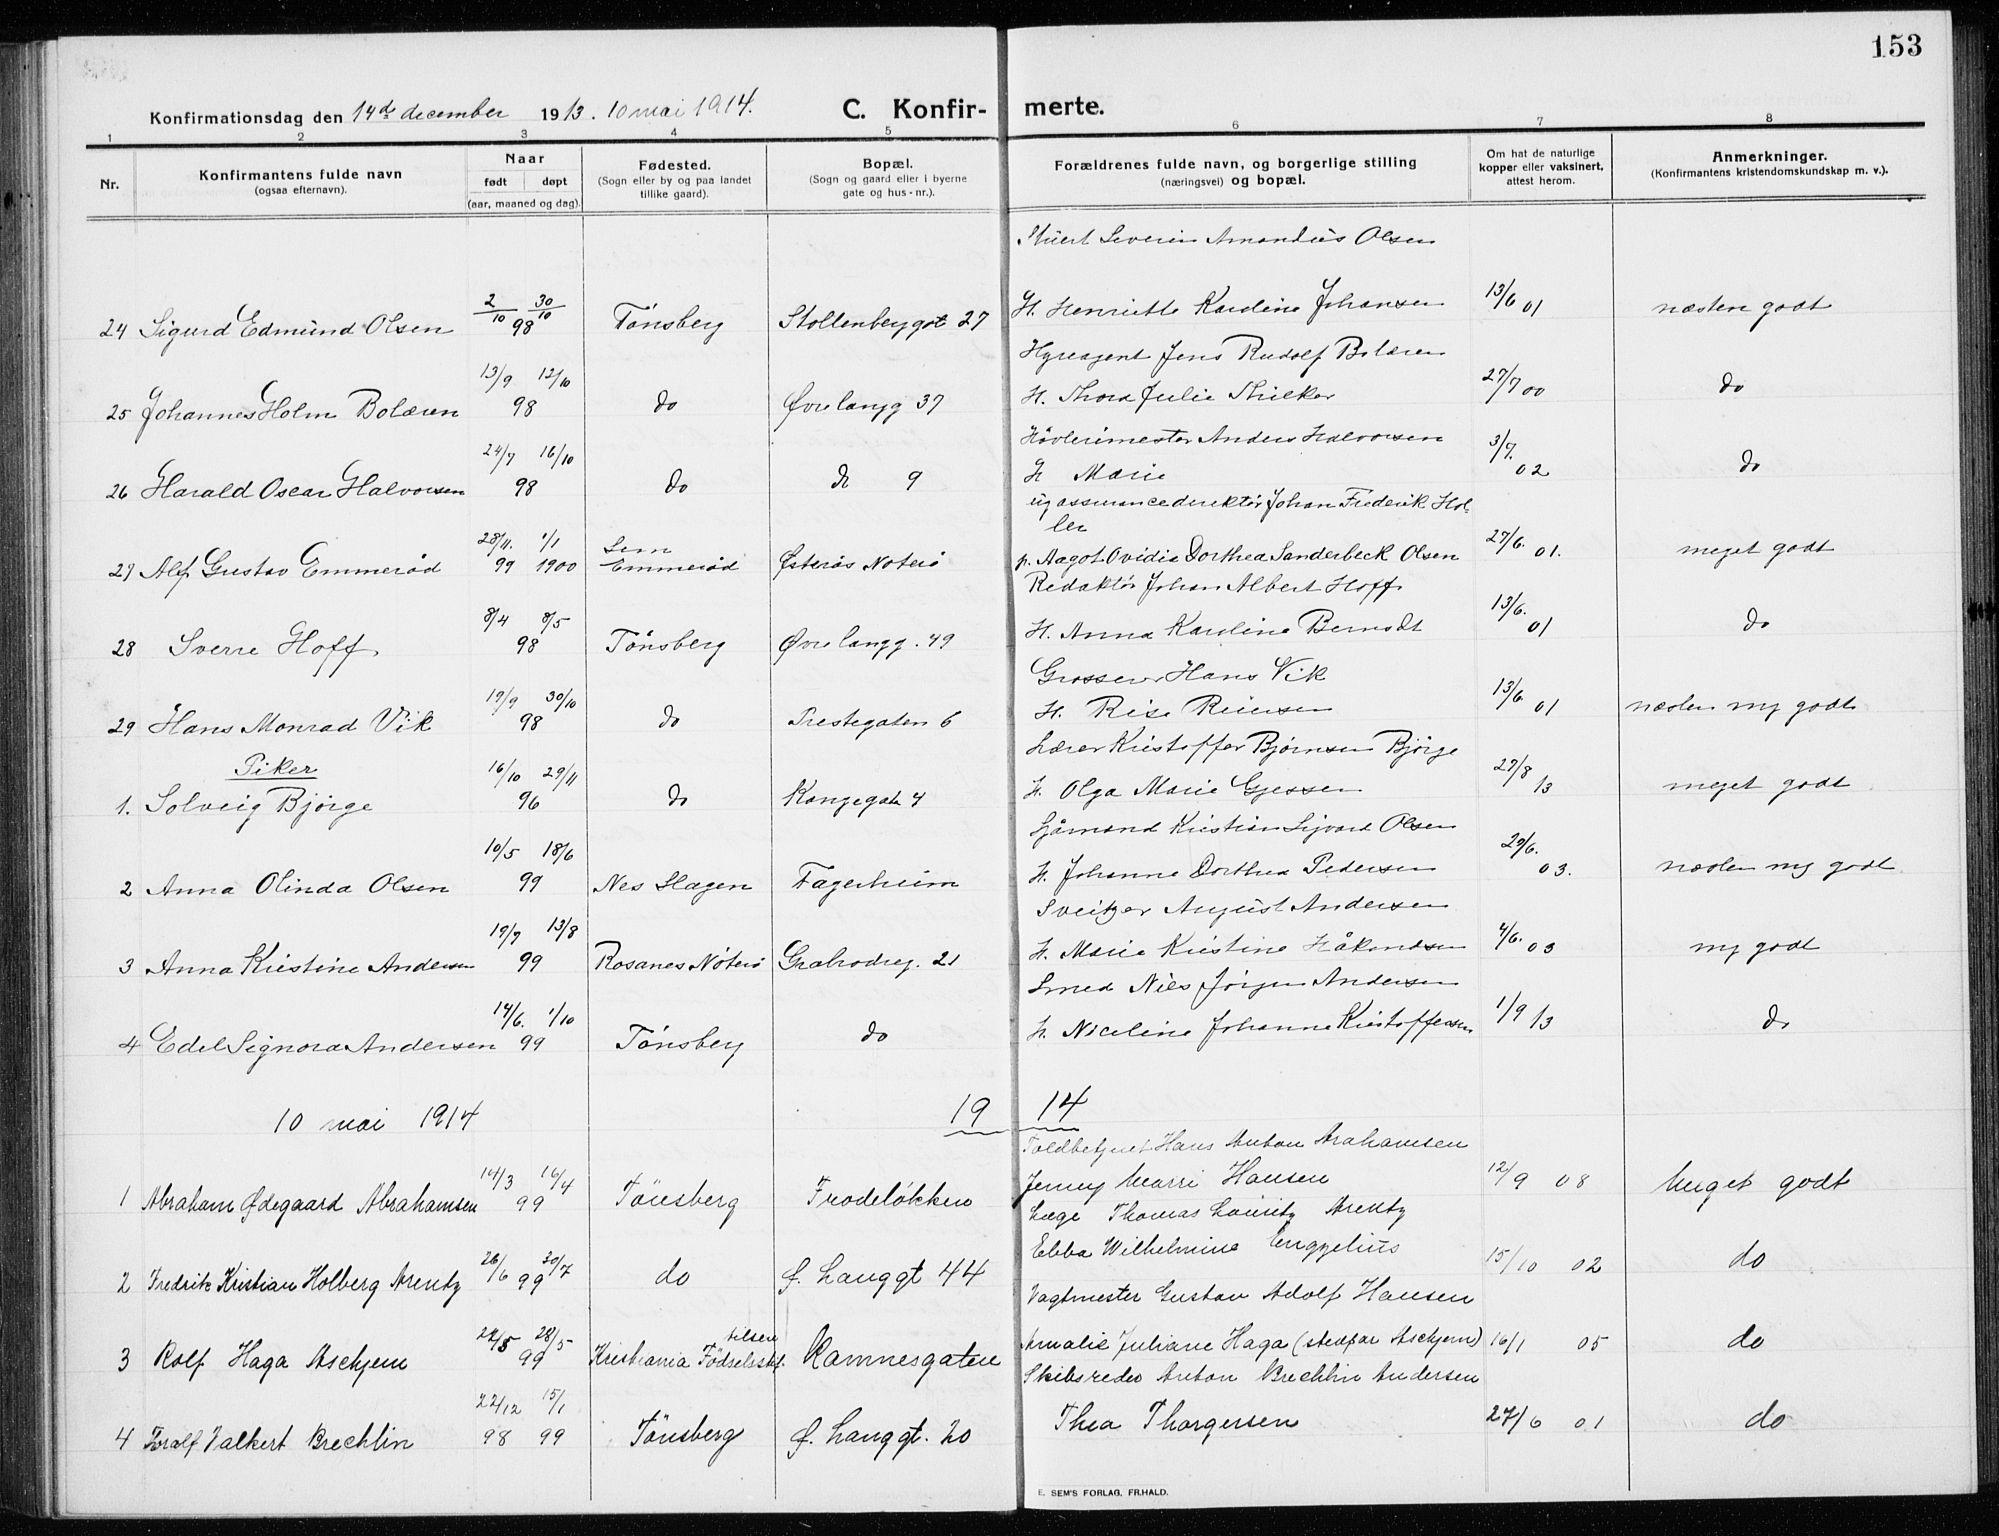 153
Konfirmationsdag den 14de december 1913. 10 mai 1914. C. Konfirmerte.
1 2 3 4 5 6 7 8
Nr. Konfirmantens fulde navn (ogsaa efternavn). Naar født døpt (aar, maaned og dag). Fødested. (Sogn eller by og paa landet tillike gaard). Bopæl. (Sogn og gaard eller i byerne gate og hus-nr.). Forældrenes fulde navn, og borgerlige stilling (næringsvei) og bopæl. Om hat de naturlige kopper eller vaksinert, attest herom. Anmerkninger. (Konfirmantens kristendomskundskap m. v.).
Severin Amandus Olsen
24 Sigurd Edmund Olsen 2/10 30/10 98 Tønsberg Stoltenberggt 27 H. Henriette Karoline Johansen 13/6 01 næsten godt
Hyreagent Jens Rudolf Bolæren
25 Johannes Holm Bolæren 13/9 12/10 98 do Øvre langg 37 H. Thora Julie 27/7 00 do
Høvlerimester Anders Halvorsen
26 Harald Oscar Halvorsen 24/7 16/10 98 do do 9 H Marie 3/7. 02 do
ug assurancedirektør Johan Frederik Hol-
ler
27 Alf Gustav Emmerød 28/11. 1/1 99 1900 Sem Emmerød Østerøs Nøterø p. Aagot Ovidia Dorthea Sanderbeck Olsen 27/6. 01. meget godt
Redaktør Johan Albert Hoff
28 Sverre Hoff 8/4 8/5 98 Tønsberg Øvre langg. 49 H. Anna Karoline Berndt 13/6. 01 do
Grosserer Hans Vik
29 Hans Monrad Vik 19/9 30/10 98 do Prestegaten 6 H. Reiersen 13/6 01 næsten mg godt
Lærer Kristoffer Bjørnsen Bjørge
Piker
1. Solveig Bjørge 16/10 29/11 96 do Kongegate 4 H. Olga Marie Gjessen 27/8 13 meget godt
Sjømand Kristian Sigvard Olsen
2 Anna Olinda Olsen 10/5 18/6 99 Nes Slagen Fagerheim H. Johanne Dorthea Pedersen 29/6. 03. næsten mg godt
Sveitzer August Andersen
3 Anna Kristine Andersen 19/7 13/8 99 Rosanes Nøterø Grabrødreg. 21 H. Marie Kristine Håkonsen 4/6. 03 mg godt
Smed Nils Jörgen Andersen
4 Edel Signora Andersen 14/6. 1/10 99 Tønsberg do H. Nicoline Johanne Kristoffersen 1/9 13 do
10 mai 1914 1914
Toldbetjent Hans Anton Arahamsen
1 Abraham Ødegaard Abrahamsen 14/3 16/4 99 Tönsberg Frodeløkken Jenny Marri Hansen 12/9 08 Meget godt
Læge Thomas Lauritz Arentz
2 Fredrik Kristian Holberg Arentz 26/6 30/7 99 do Ø. Langgt 44 Ebba Wilhelmine Enggelius 15/10 02 do
Vagtmester Gustav Adolf Hansen
3 Rolf Haga Aschjem 28/5 99 Kristiania Födselsstif. Ramnesgaten Amalie Juliane Haga (stedfar Aschjem) 16/1 05 do
Skibsreder Anton Brechlin Andersen
4 Valkert Brechlin 22/12 15/1 98 99 Tönsberg Ø. Langgt. 20 Thea Thorgersen 27/6 01 do
E. SEM'S FORLAG, FR.HALD.